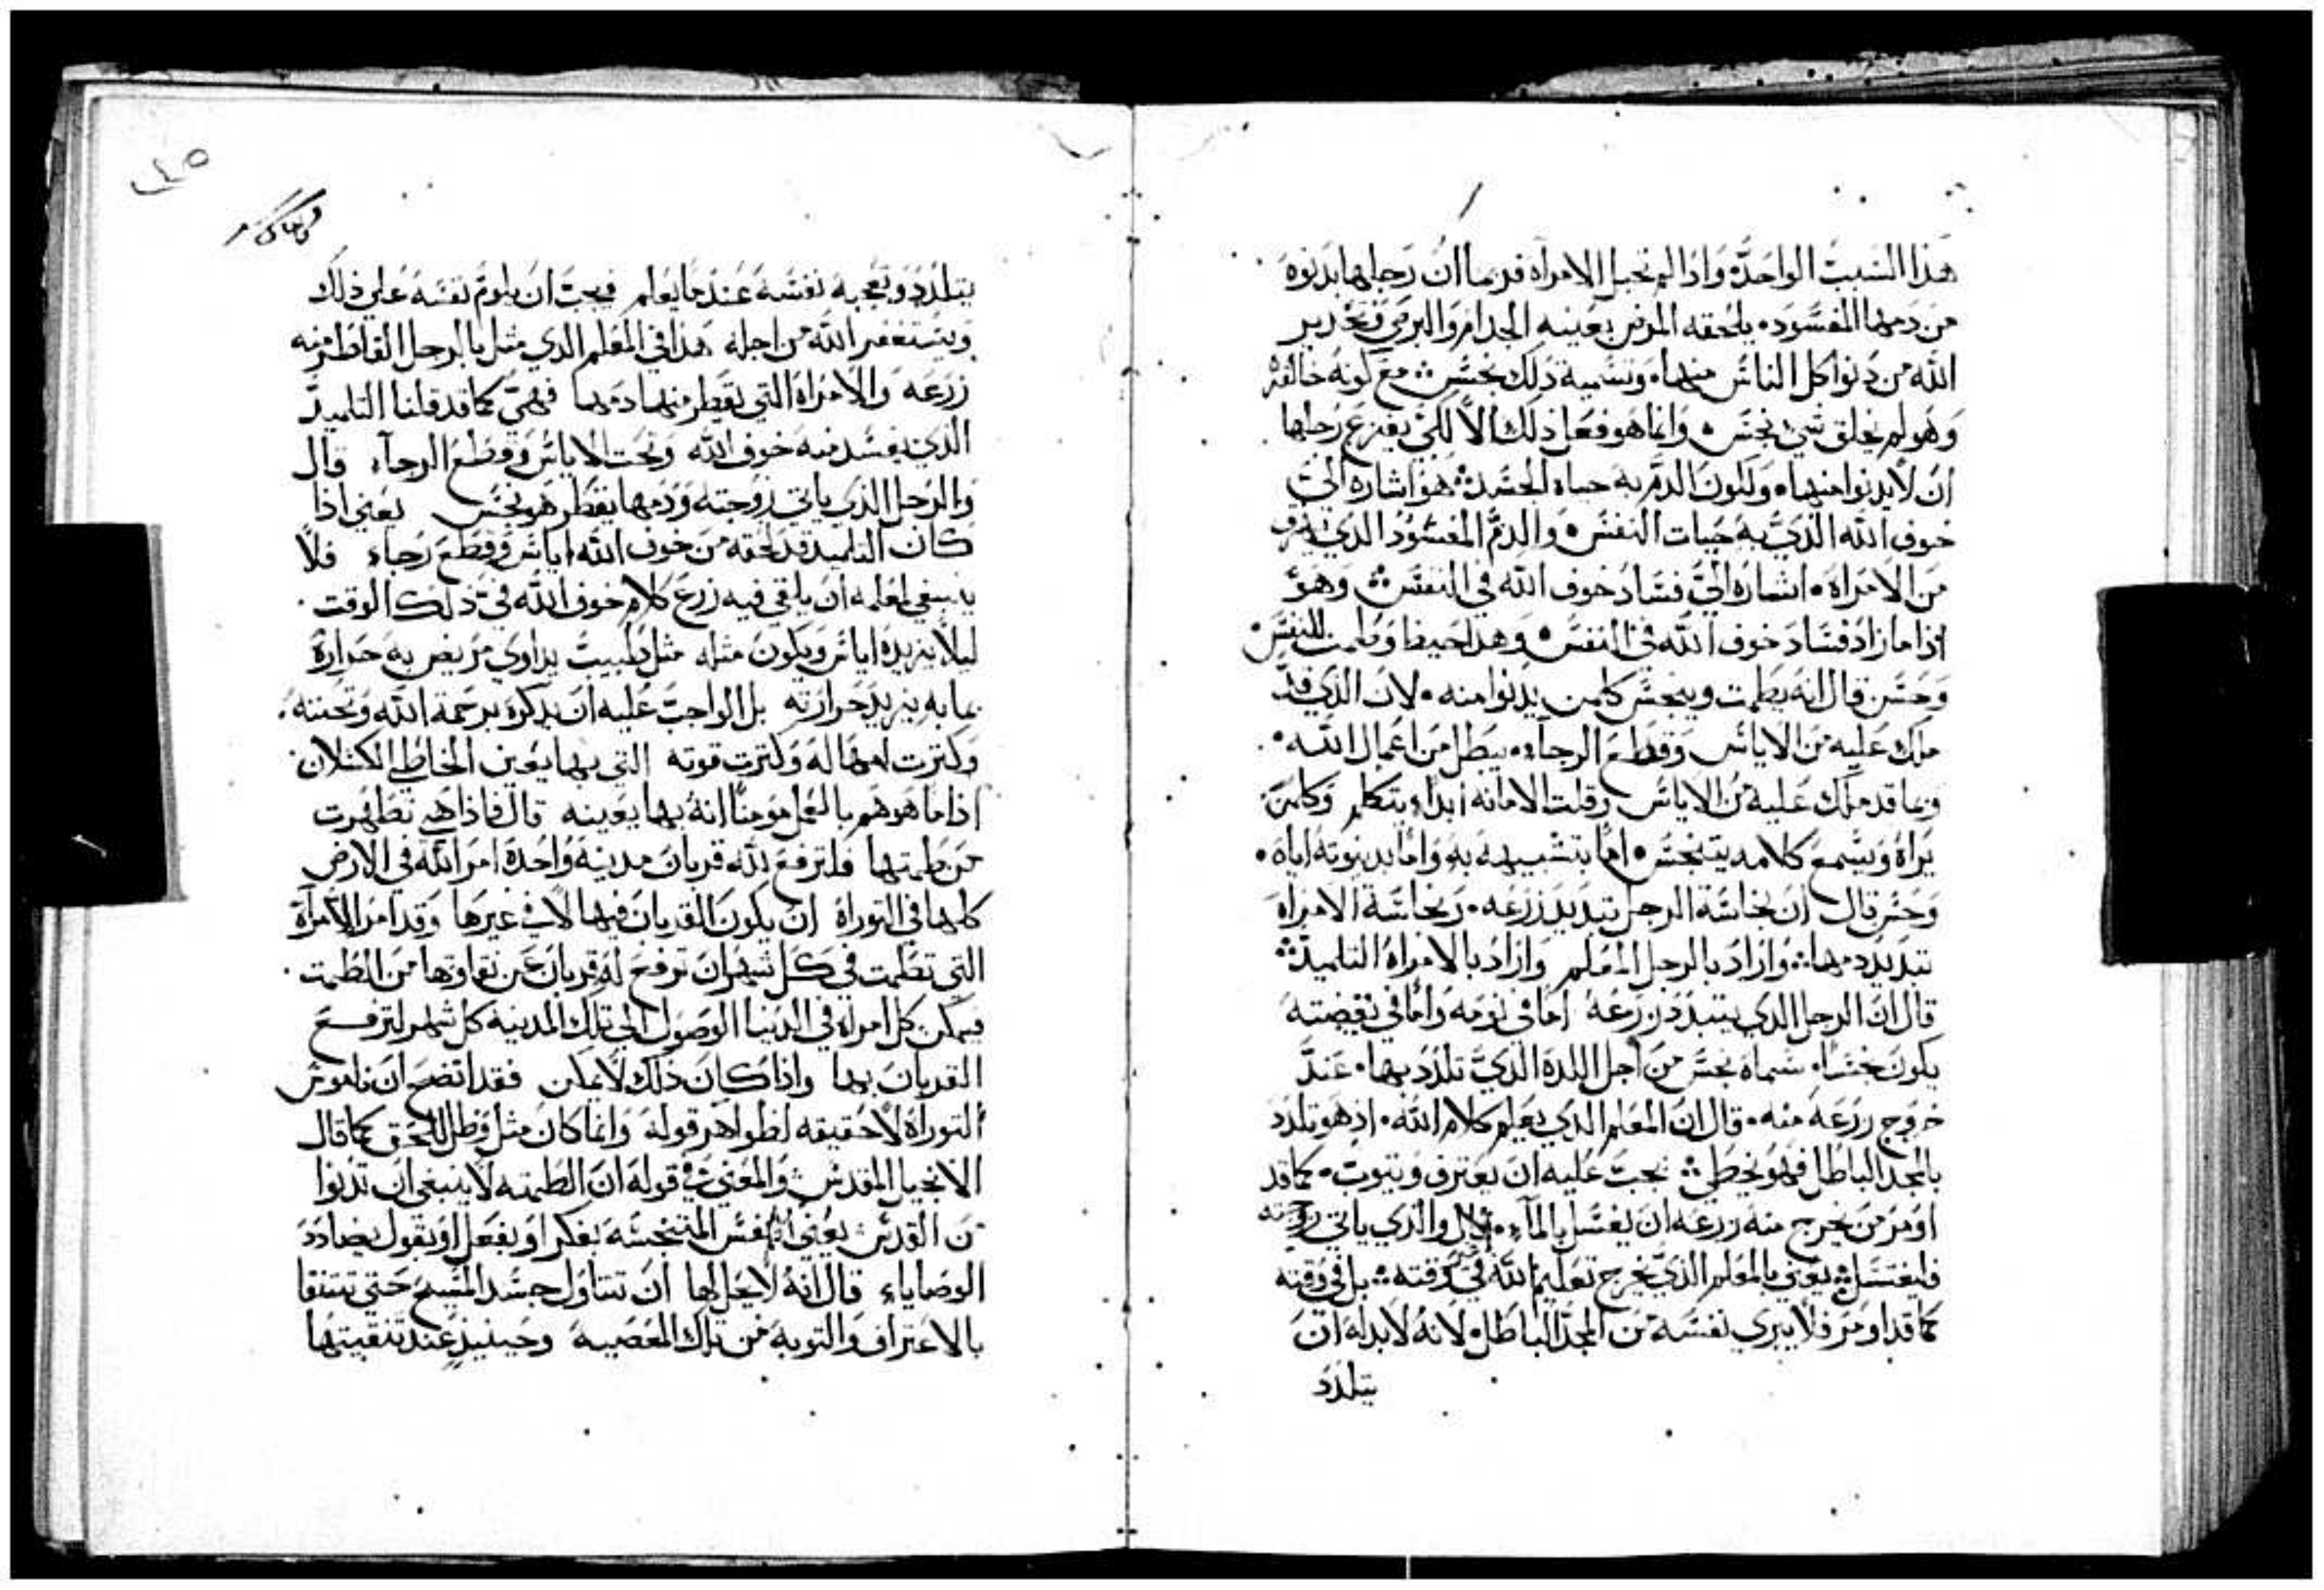 هذا السبب الواحده واذا لم تحبل الامراه فربما ان رجلها بدنوه
من دمها المفسود ٠ يلحقه المرض بعينيه الجدام والبرص وتحدير
الله من دنوا كل الناس منها ٠ وتسمية ذلك نجس ؞ مع كونه خالقه
وهو لم يخلق شي نجس ٠ وانما هو فعل ذلك الا لكي يفزع رجلها
ان لا يدنوا منها ٠ ولكون الدم به حياة الجسد ؞ هو اشاره الي
خوف الله الذي به حيات النفس ٠ والدم المفسود الذي
من الامراه ٠ اشاره الي فساد خوف الله في النفس ؞ وهو
اذا ما زاد فساد خوف الله في النفس ٠ وهذا حيضا وطمت للنفس ٠
وحسن قال انه يطمت وينجس كلمن يدنوا منه ٠ لان الذي قد
ملك عليه من الاياس وقطع الرجاء ٠ يبطل من اعمال الله ٠
وبما قد ملك عليه من الاياس وقلت الامانه ابداء يتكلم وكلمن
يراه ويسمع كلامه يتنجس ٠ اما بتشبيهه به واما بدنوته اياه ٠
وحسن قال ان نجاسة الرجل تبديد زرعه ٠ ونجاسة الامراه
تبديد دمها ؞ واراد بالرجل المعلم واراد بالامراه التلميد ؞
قال ان الرجل الدي يتبدد زرعه اما في نومه واما في يقضته
يكون نجسا ٠ سماه نجس من اجل اللده الذي تلدد بها ٠ عند
خروج زرعه منه ٠ قال ان المعلم الدي يعلم كلام الله ٠ اذ هو تلدد
بالمجد الباطل فهو يخطي ؞ يجب عليه ان يعترف ويتوب ٠ كما قد
اومر من يخرج منه زرعه ان يغسل بالماء ٠ قال والذي ياتي زوجته
فليغتسل ؞ يعني بالمعلم الذي يخرج تعليم الله في غير وقته ؞ بل في وقته
كما قد اومر فلا يبري نفسه من المجد الباطل ٠ لانه لا بد له ان
يتلدد
يتلدد وتعجبه نفسه عند ما يعلم فيجب ان يلوم نفسه علي ذلك
ويستغفر الله من اجله هذا في المعلم الدي مثل بالرجل القاطر منه
زرعه والامراه التي يقطر منها دمها فهي كما قد قلنا التلميد
الذي يفسد منه خوف الله وتحت الاياس وقطع الرجاء قال
والرجل الذي ياتي زوجته ودمها يقطر هو نجس يعني اذا
كان التلميد قد لحقه من خوف الله اياس وقطع رجاء فلا
ينبغي لمعلمه ان يلقي فيه زرع كلام خوف الله في ذلك الوقت ٠
ليلا يزيده اياس ويكون مثله مثل طبيب يداوي مريض به حراره
بما به يزيد حرارته بل الواجب عليه ان يدكره برحمة الله وتحننه ٠
وكترت امهاله وكترت قوته التي بها يعين الخاطي الكسلان ٠
اذا ما هو هم بالعمل مومنا انه بها يعينه قال فاذا هي تطهرت
من طمتها فلترفع لله قربان مدينه واحده امر الله في الارض
كلها في التوراة ان يكون القربان فيها لا في غيرها وقد امر الامراة
التي تطمت في كل شهر ان ترفع له قربان عن نقاوتها من الطمت ٠
فيمكن كل امراه في الدنيا الوصول الي تلك المدينه كل شهر لترفع
القربان بها واذا كان ذلك لا يمكن فقد اتضح ان ناموس
التوراة لا حقيقه لظواهر قوله وانما كان مثل وظل للحق كما قال
الانجيل المقدس والمعني في قوله ان الطمته لا ينبغي ان تدنوا
من القدس يعني النفس المتنجسه بفكر او بفعل او بقول يضادد
الوصاياء قال انه لا يحل لها ان تتناول جسد المسيح حتي تتنقا
بالاعتراف والتوبه من تلك المعصيه وحينيذ عند تنقيتها